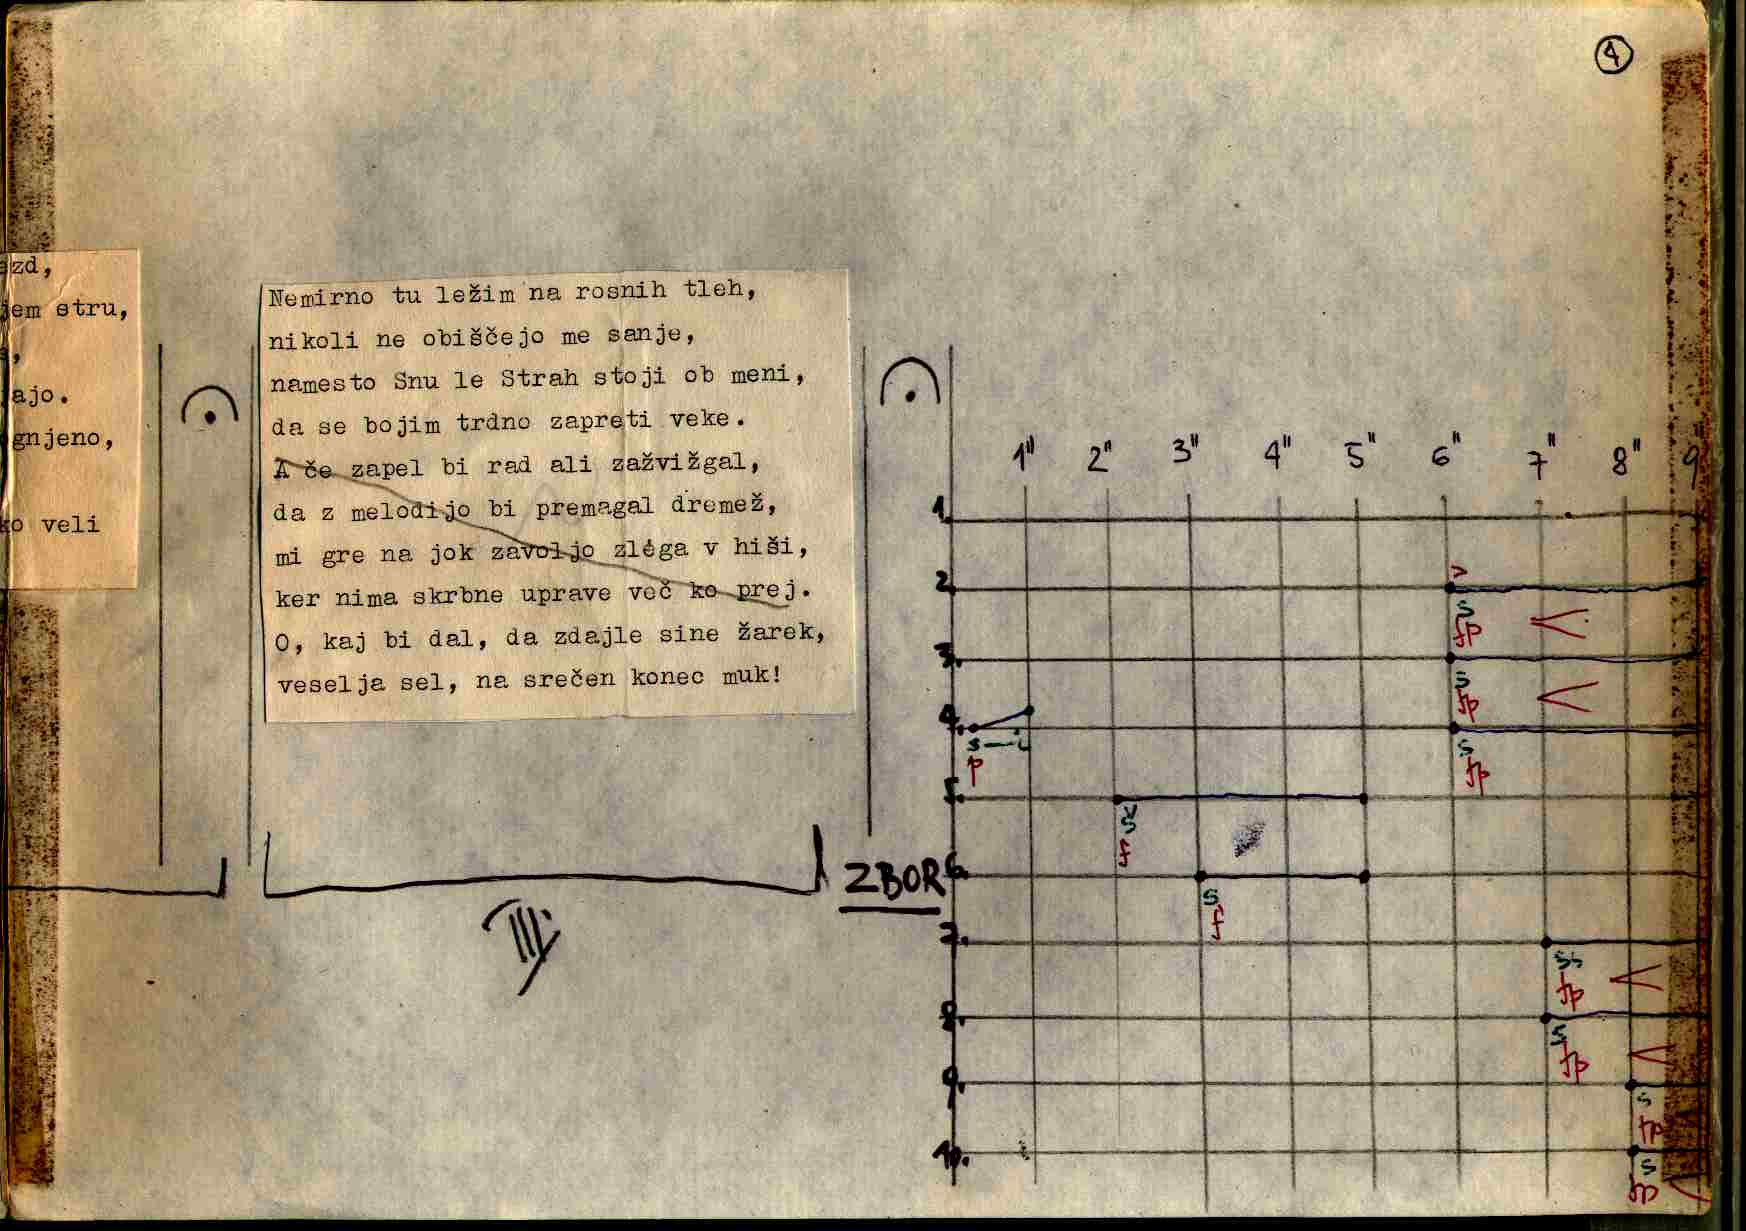 4
zd,
jem stru,
,
ajo.
gnjeno,
o veli
Nemirno tu ležim na rosnih tleh,
nikoli ne obiščejo me sanje,
namesto Snu le Strah stoji ob meni,
da se bojim trdno zapreti veke.
A če zapel bi rad ali zažvižgal,
da z melodijo bi premagal dremež,
mi gre na jok zavoljo zlega v hiši,
ker nima skrbne uprave več ko prej.
O, kaj bi dal, da zdajle sine žarek,
veselja sel, na srečen konec muk!
III
ZBOR
1" 2" 3" 4" 5" 6" 7" 8" 9"
1.
2. >
s
fp
3.
s
fp
4.
s—i s
p fp
5.
š
f
6.
s
f
7.
fp
8.
fp
9.
s
fp
10.
s
fp